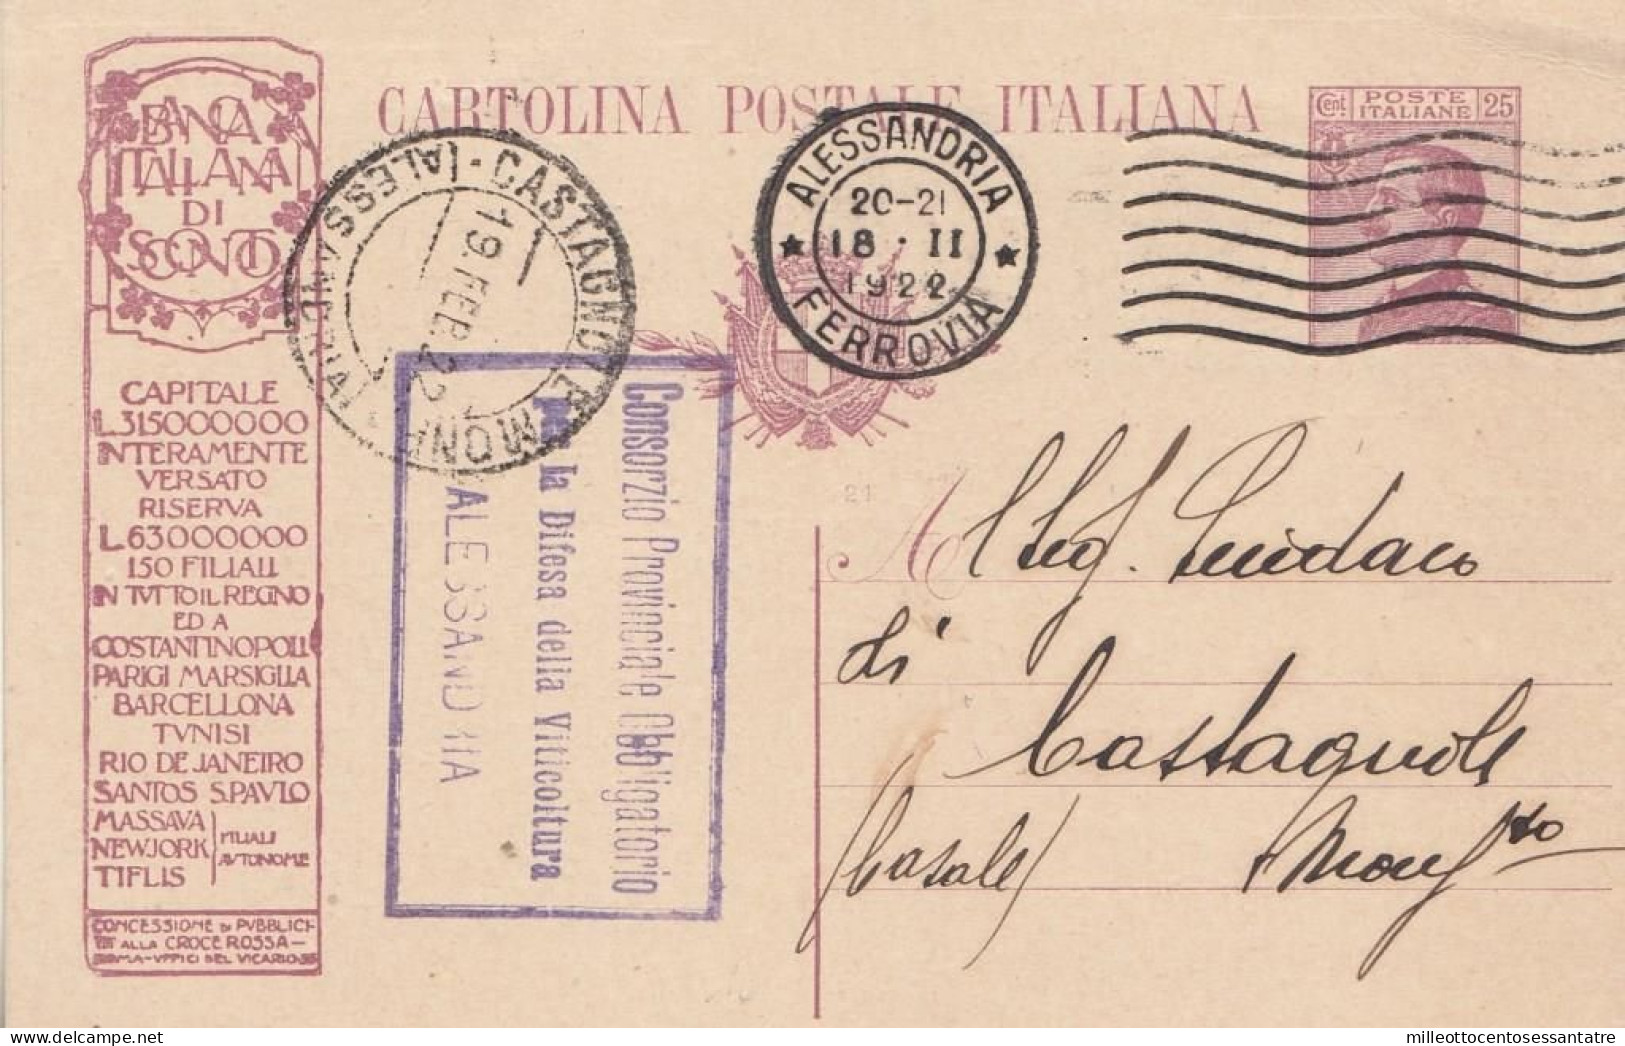 BANCA
ITALIANA
DI
SCONTO
CAPITALE
L.315000000
INTERAMENTE
VERSATO
RISERVA
L.63000000
150 FILIALI
IN TVTTO IL REGNO
ED A
COSTANTINOPOLI
PARIGI MARSIGLIA
BARCELLONA
TVNISI
RIO DE JANEIRO
SANTOS S.PAVLO
MASSAVA
NEWJORK
TIFLIS
FILIALI
AVTONOME
CONCESSIONE DI PVBBLICI-
TÀ ALLA CROCE ROSSA—
ROMA-VFFICI DEL VICARIO
CARTOLINA POSTALE ITALIANA
Cent. POSTE ITALIANE 25
CASTAGNOLE MONF
(ALESSANDRIA)
19.FEB.22
ALESSANDRIA
20-21
18·II
1922
FERROVIA
Consorzio Provinciale Obbligatorio
per la Difesa della Viticoltura
ALESSANDRIA
21
A Ill Sig. Sindaco
di
Castagnole
(Casale) Monf.to
milleottocentosessantatre